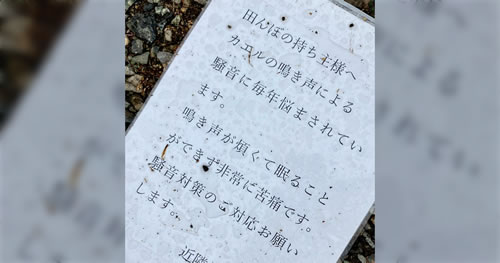 田んぼの持ち主様へ
カエルの鳴き声による
騒音に毎年悩まされてい
ます。
鳴き声が煩くて眠ること
ができず非常に苦痛です。
騒音対策のご対応お願い
します。
近隣